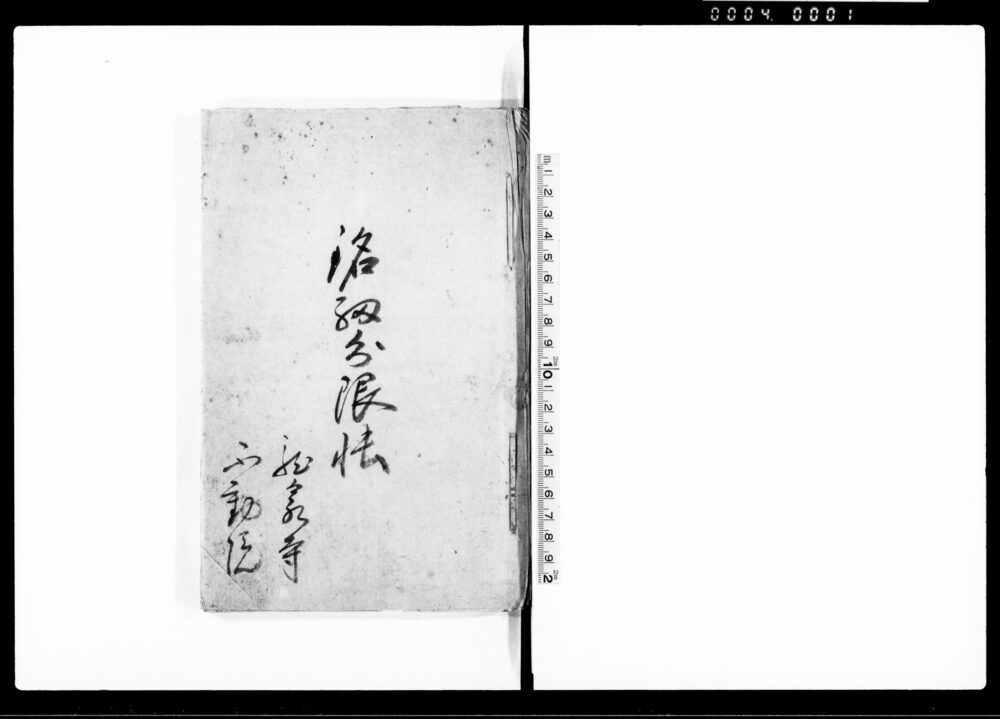 0004. 0001
銘細分限帳
龍泉寺
不動院
m 1 2 3 4 5 6 7 8 9 10 1 2 3 4 5 6 7 8 9 2